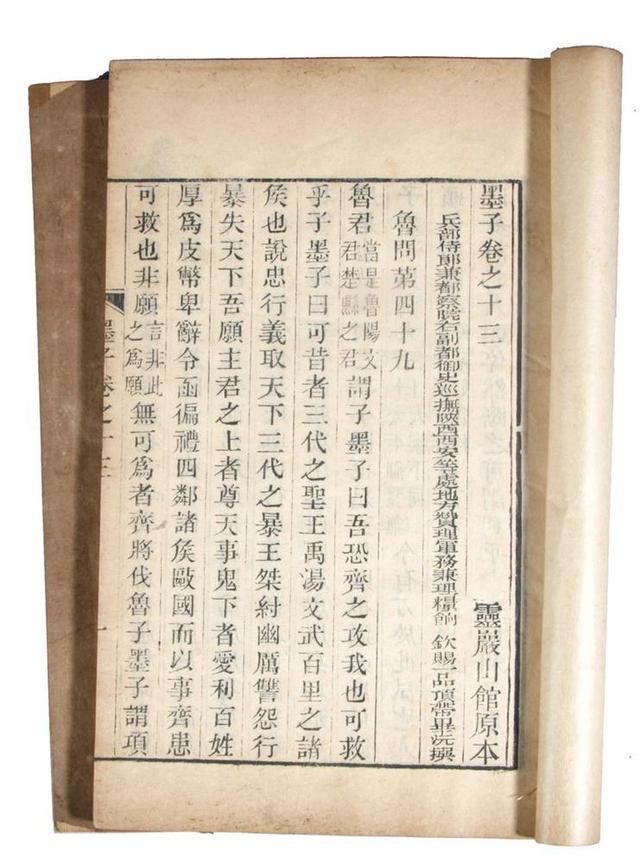 墨子卷之十三 靈巖山館原本
兵部侍郎兼都察院右副都御史巡撫陝西西安等處地方贊理軍務兼理糧餉 欽賜一品頂帶畢沅撰
魯問第四十九
魯君當是魯陽文君楚縣之君謂子墨子曰吾恐齊之攻我也可救
乎子墨子曰可昔者三代之聖王禹湯文武百里之諸
侯也說忠行義取天下三代之暴王桀紂幽厲讐怨行
暴失天下吾願主君之上者尊天事鬼下者愛利百姓
厚爲皮幣卑辭令亟徧禮四鄰諸侯敺國而以事齊患
可救也非願言非此之爲願無可爲者齊將伐魯子墨子謂項
墨子卷之十三
一